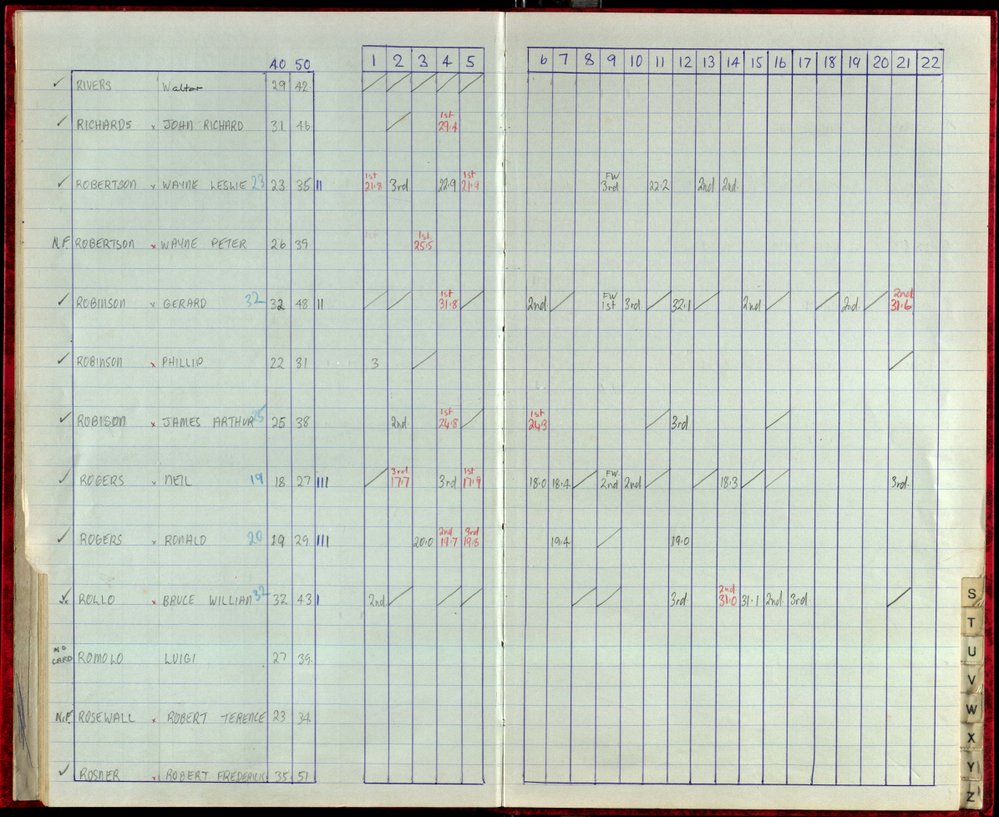 40 50 1 2 3 4 5 6 7 8 9 10 11 12 13 14 15 16 17 18 19 20 21 22
✓ RIVERS Walter 29 42 / / / / /
✓ RICHARDS x JOHN RICHARD 31 46 / 1st 29.4
✓ ROBERTSON x WAYNE LESLIE 23 23 35 II 1st 21.8 3rd 22.9 1st 21.9 FW 3rd 22.2 2nd 2nd
N.F. ROBERTSON x WAYNE PETER 26 39 1st 25.5
✓ ROBINSON x GERARD 32 32 48 II / / 1st 31.8 / 2nd / FW 1st 3rd / 32.1 / 2nd / / 2nd / 2nd 31.6
✓ ROBINSON x PHILLIP 22 31 3 / /
✓ ROBISON x JAMES ARTHUR 25 25 38 2nd 1st 24.8 / 1st 24.3 / 3rd /
✓ ROGERS x NEIL 19 18 27 III / 3rd 17.7 3rd 1st 17.9 18.0 18.4 / FW 2nd 2nd / / 18.3 / / 3rd
✓ ROGERS x RONALD 20 19 29 III 20.0 2nd 19.7 3rd 19.8 19.4 / 19.0
✓ ROLLO x BRUCE WILLIAM 32 32 43 I 2nd / / / / / 3rd 2nd 31.0 31.1 2nd 3rd /
NO CARD ROMOLO LUIGI 27 39
N.F. ROSEWALL x ROBERT TERENCE 23 34
✓ ROSNER x ROBERT FREDERICK 35 51
S
T
U
V
W
X
Y
Z